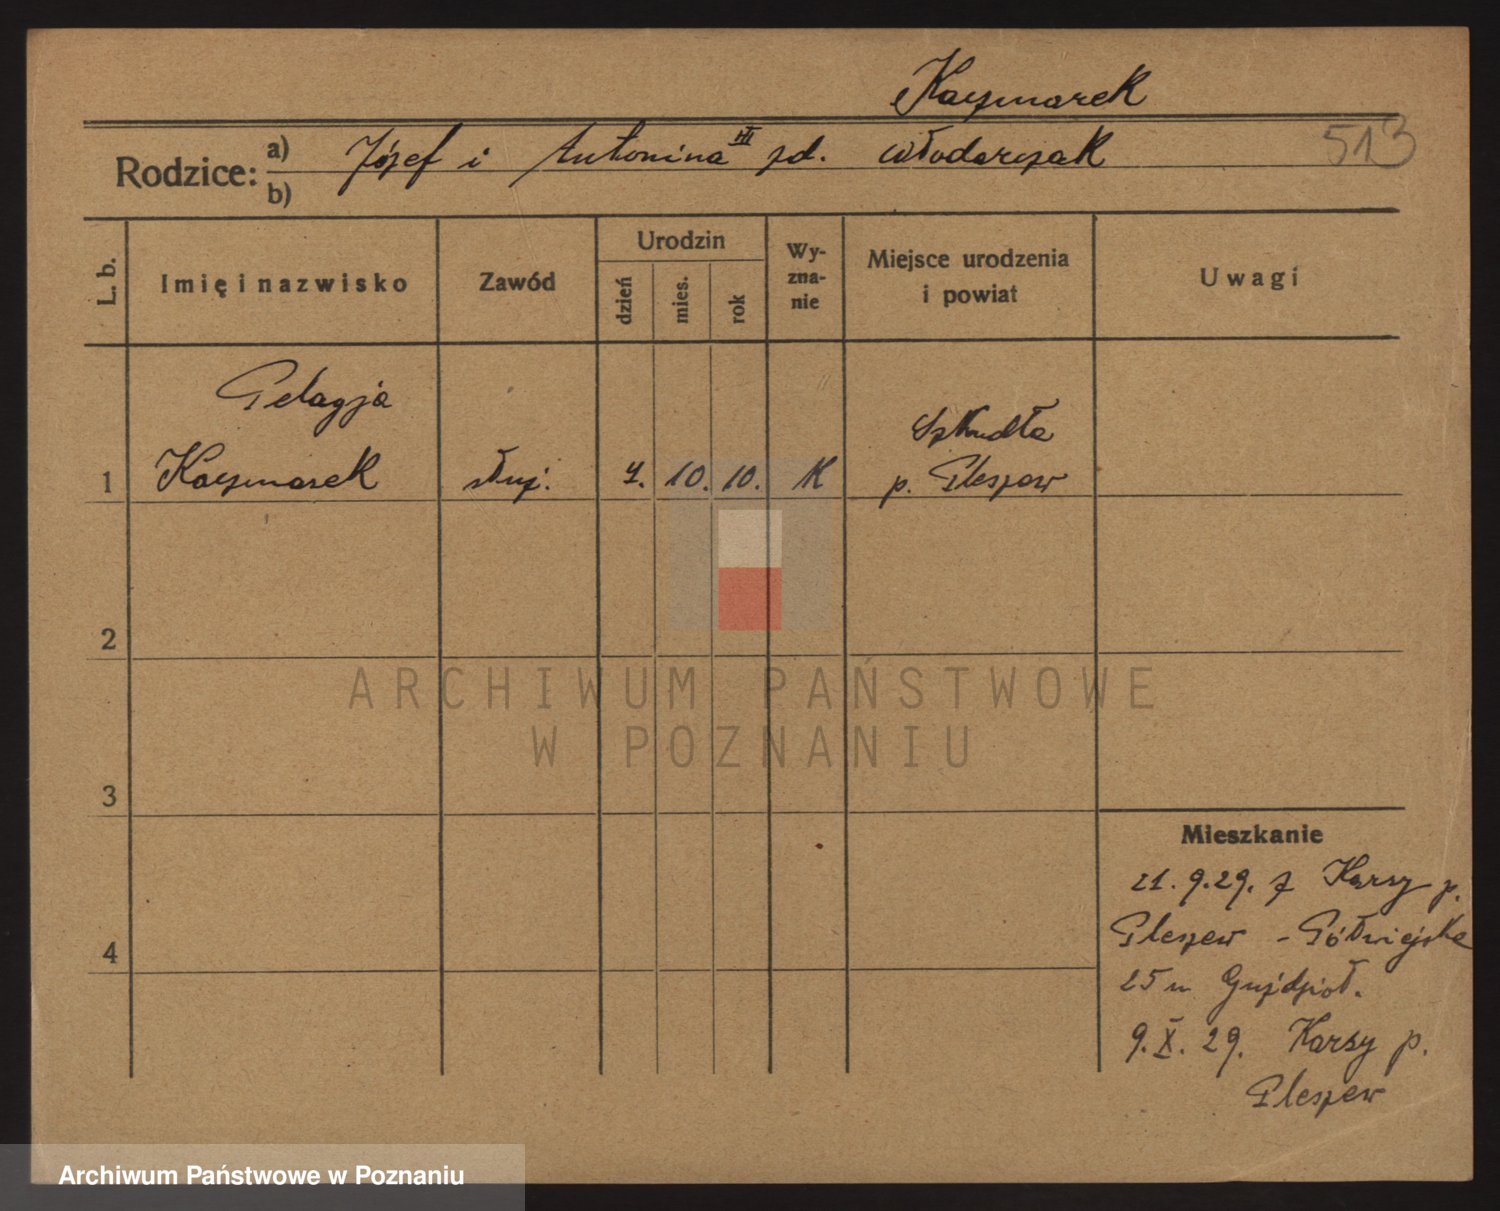 Kaczmarek
513
Rodzice: a) Józef i Antonina III zd. Włodarczak
b)
L. b.
Imię i nazwisko
Zawód
Urodzin
dzień
mies.
rok
Wy-
zna-
nie
Miejsce urodzenia
i powiat
Uwagi
Pelagja
1 Kaczmarek służ. 4. 10. 10. K
Szkudła
p. Pleszew
2
3
4
Mieszkanie
21. 9. 29. z Karsy p.
Pleszew - Półwiejska
25 u
9. X. 29. Karsy p.
Pleszew
ARCHIWUM PAŃSTWOWE
W POZNANIU
Archiwum Państwowe w Poznaniu